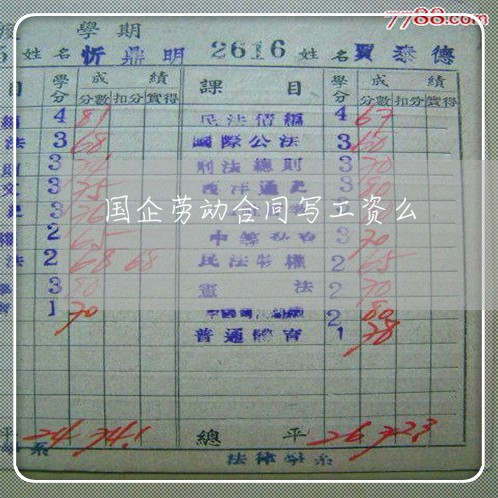 7788.com
學期
姓名 忻鼎明 2616 姓名 賈泰德
目 學分 成績 課目 學分 成績
分數 扣分 實得 分數 扣分 實得
4 81 民法債編 4 67
法 3 68 國際公法 3 60
3 刑法總則 3 70
3 75 西洋通史 3 80
國企劳动合同写工资么
2 65 3 70
法 2 68 68 民法物權 2 65
3 80 憲法 2 70
1 70 2 80
普通體育 1 78
平 24 74.1 總平 26 72.3
系 法律學系